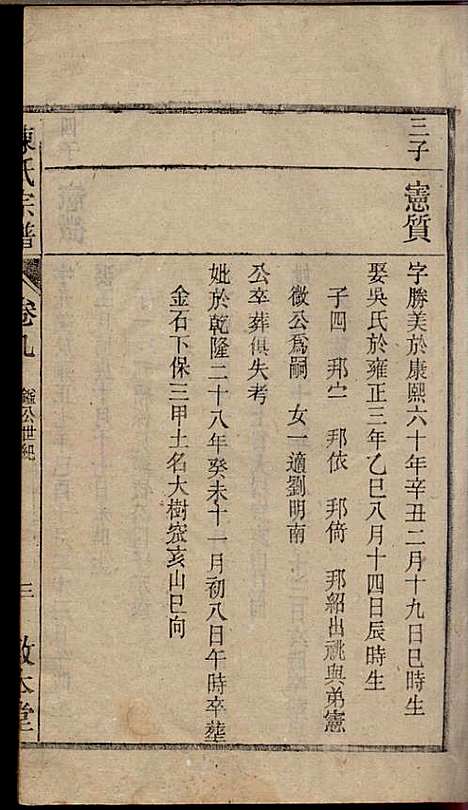 三子
憲質
字勝美於康熙六十年辛丑二月十九日巳時生
娶吳氏於雍正三年乙巳八月十四日辰時生
子四 邦宁 邦依 邦倚 邦紹出祧與弟憲
徵公為嗣 女一適劉明南
公卒葬俱失考
妣於乾隆二十八年癸未十一月初八日午時卒塟
金石下保三甲土名大樹窊亥山巳向
陳氏宗譜
卷九
鑑公世紀
三
敦本堂